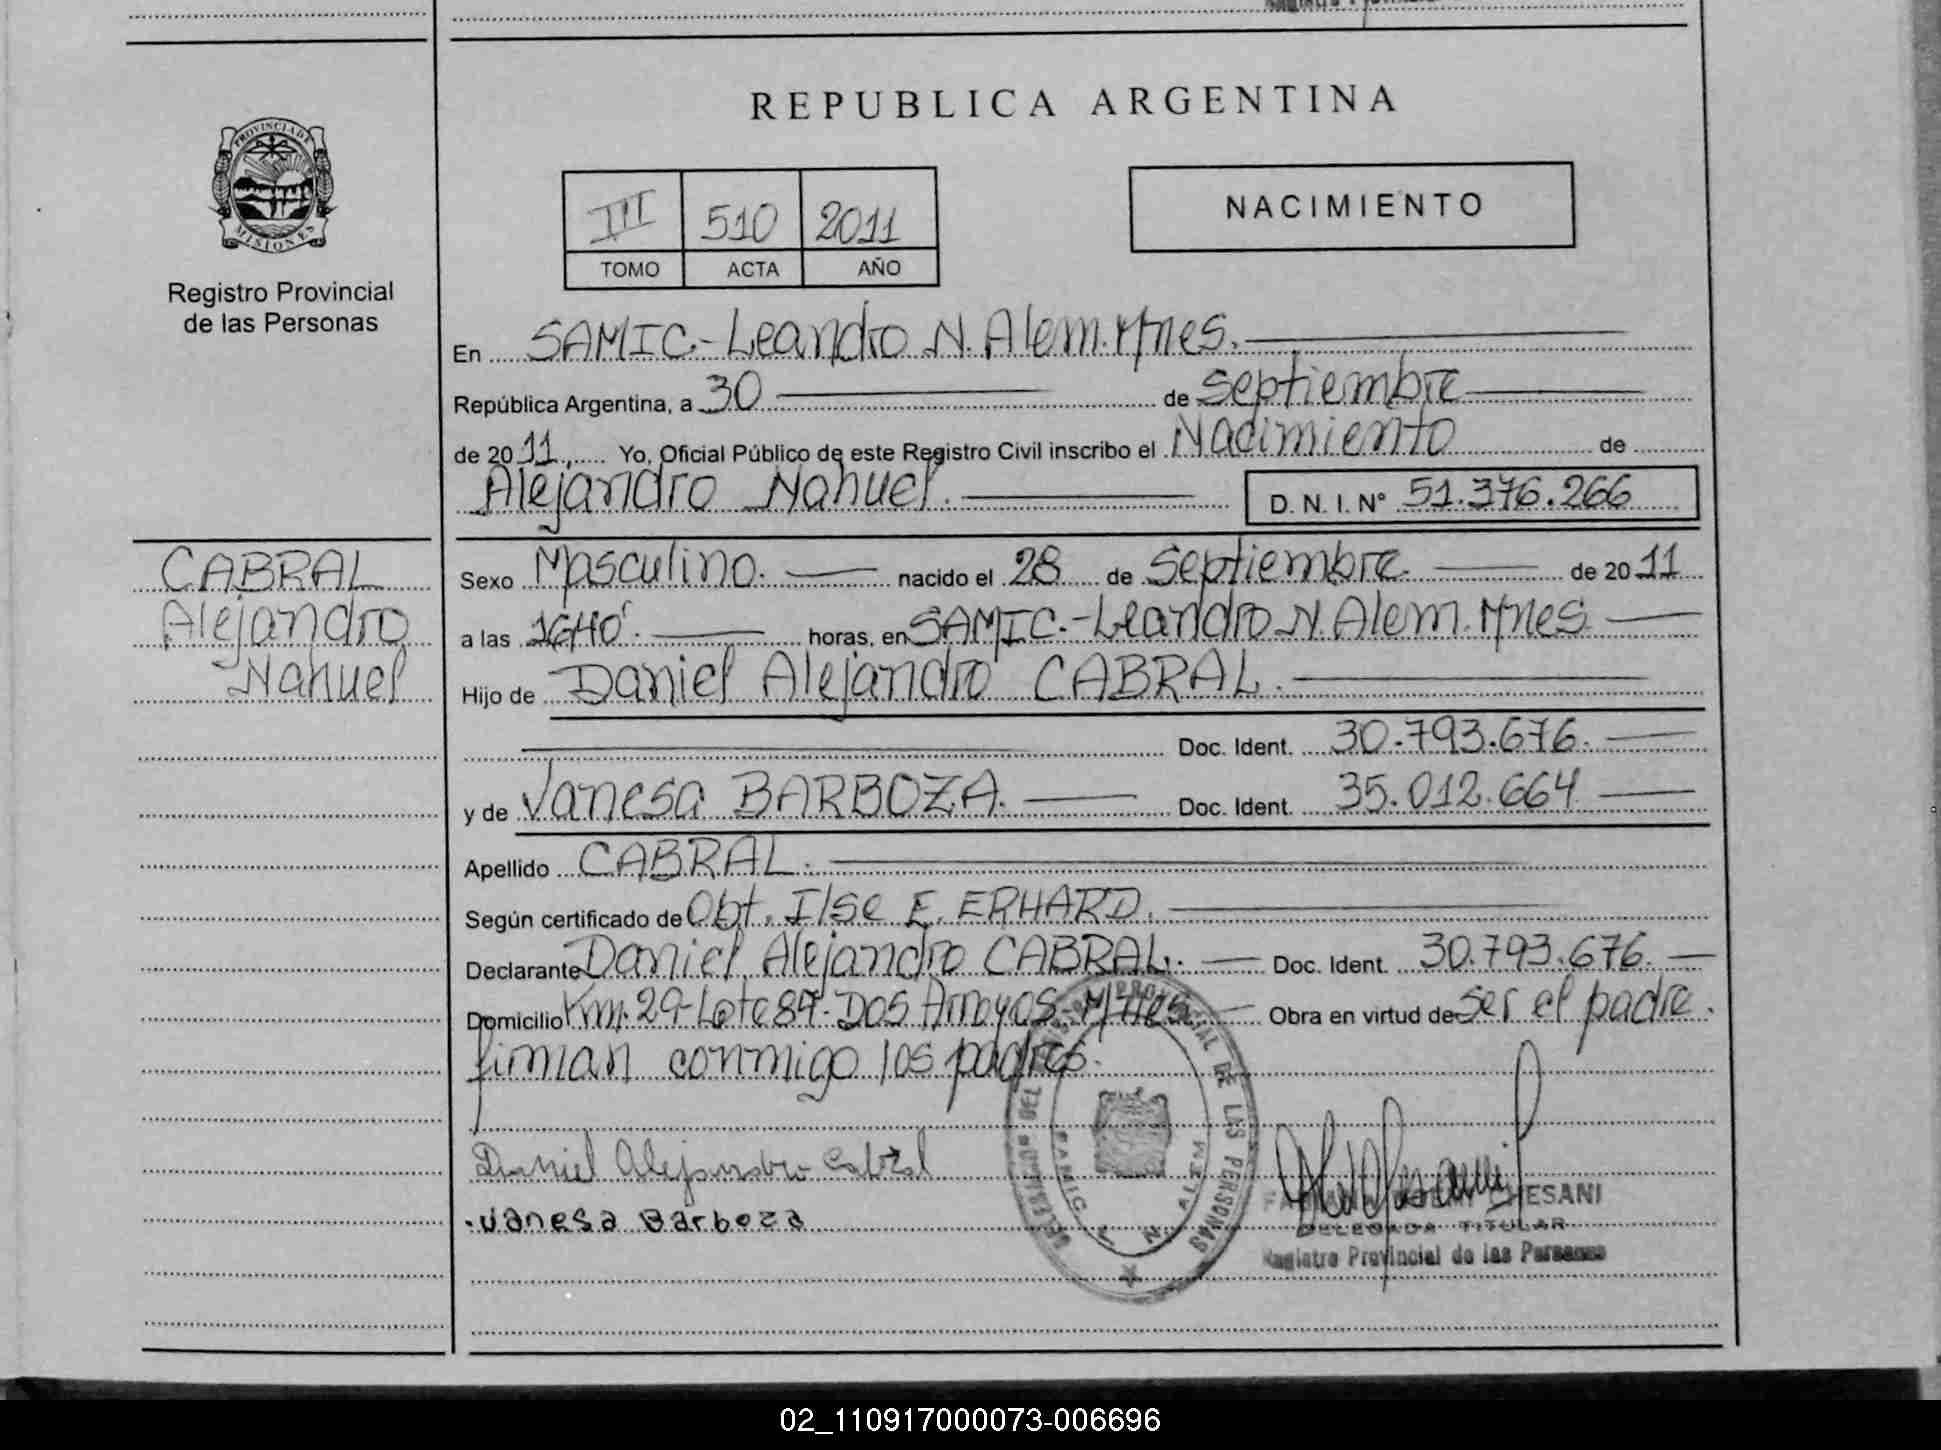 REPUBLICA ARGENTINA
PROVINCIA DE
MISIONES
Registro Provincial
de las Personas
III 510 2011
TOMO ACTA AÑO
NACIMIENTO
En SAMIC.-Leandro N. Alem. Mnes.
República Argentina, a 30 de septiembre
de 2011, Yo, Oficial Público de este Registro Civil inscribo el Nacimiento de
Alejandro Nahuel. D. N. I. N° 51.376.266
CABRAL
Alejandro
Nahuel
Sexo Masculino. nacido el 28 de septiembre. de 2011
a las 16,40'. horas, en SAMIC.-Leandro N. Alem. Mnes
Hijo de Daniel Alejandro CABRAL.
Doc. Ident. 30.793.676.
y de Vanesa BARBOZA. Doc. Ident. 35.012.664
Apellido CABRAL.
Según certificado de Obt. Ilse E. ERHARD.
Declarante Daniel Alejandro CABRAL. Doc. Ident. 30.793.676.
Domicilio Km. 29-Lote 84-Dos Arroyos. Mnes. Obra en virtud de ser el padre.
firman conmigo los padres.
Daniel Alejandro Cabral
Vanesa Barboza
PROVINCIAL DE LAS PERSONAS
SAMIC L. N. ALEM
CHESANI
DELEGADA TITULAR
Registro Provincial de las Personas
02_110917000073-006696